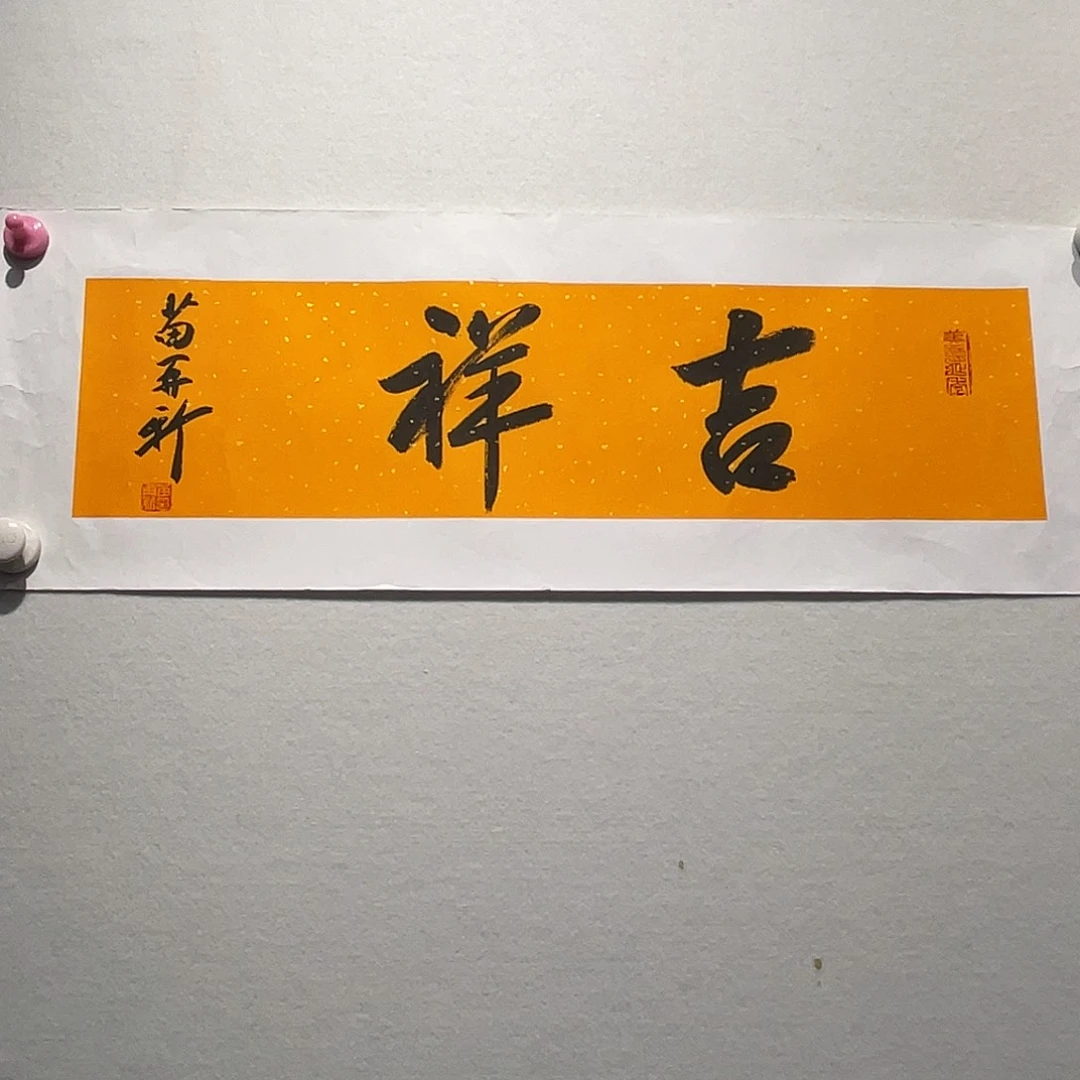 吉祥
苗再新